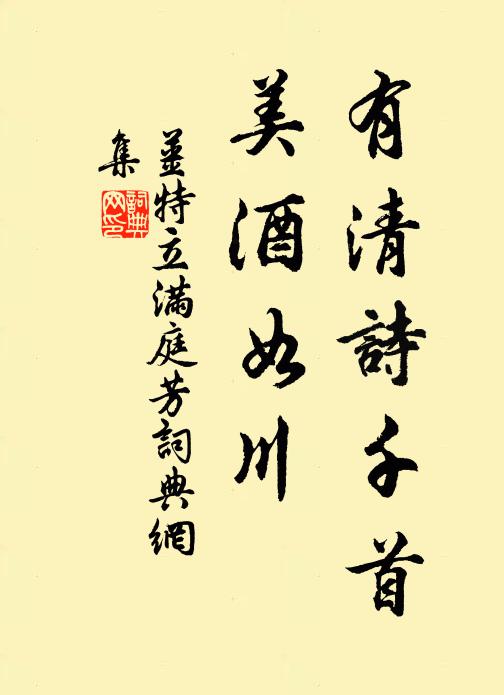 有清詩千首
美酒如川
姜特立滿庭芳詞典網
集
詞典網印